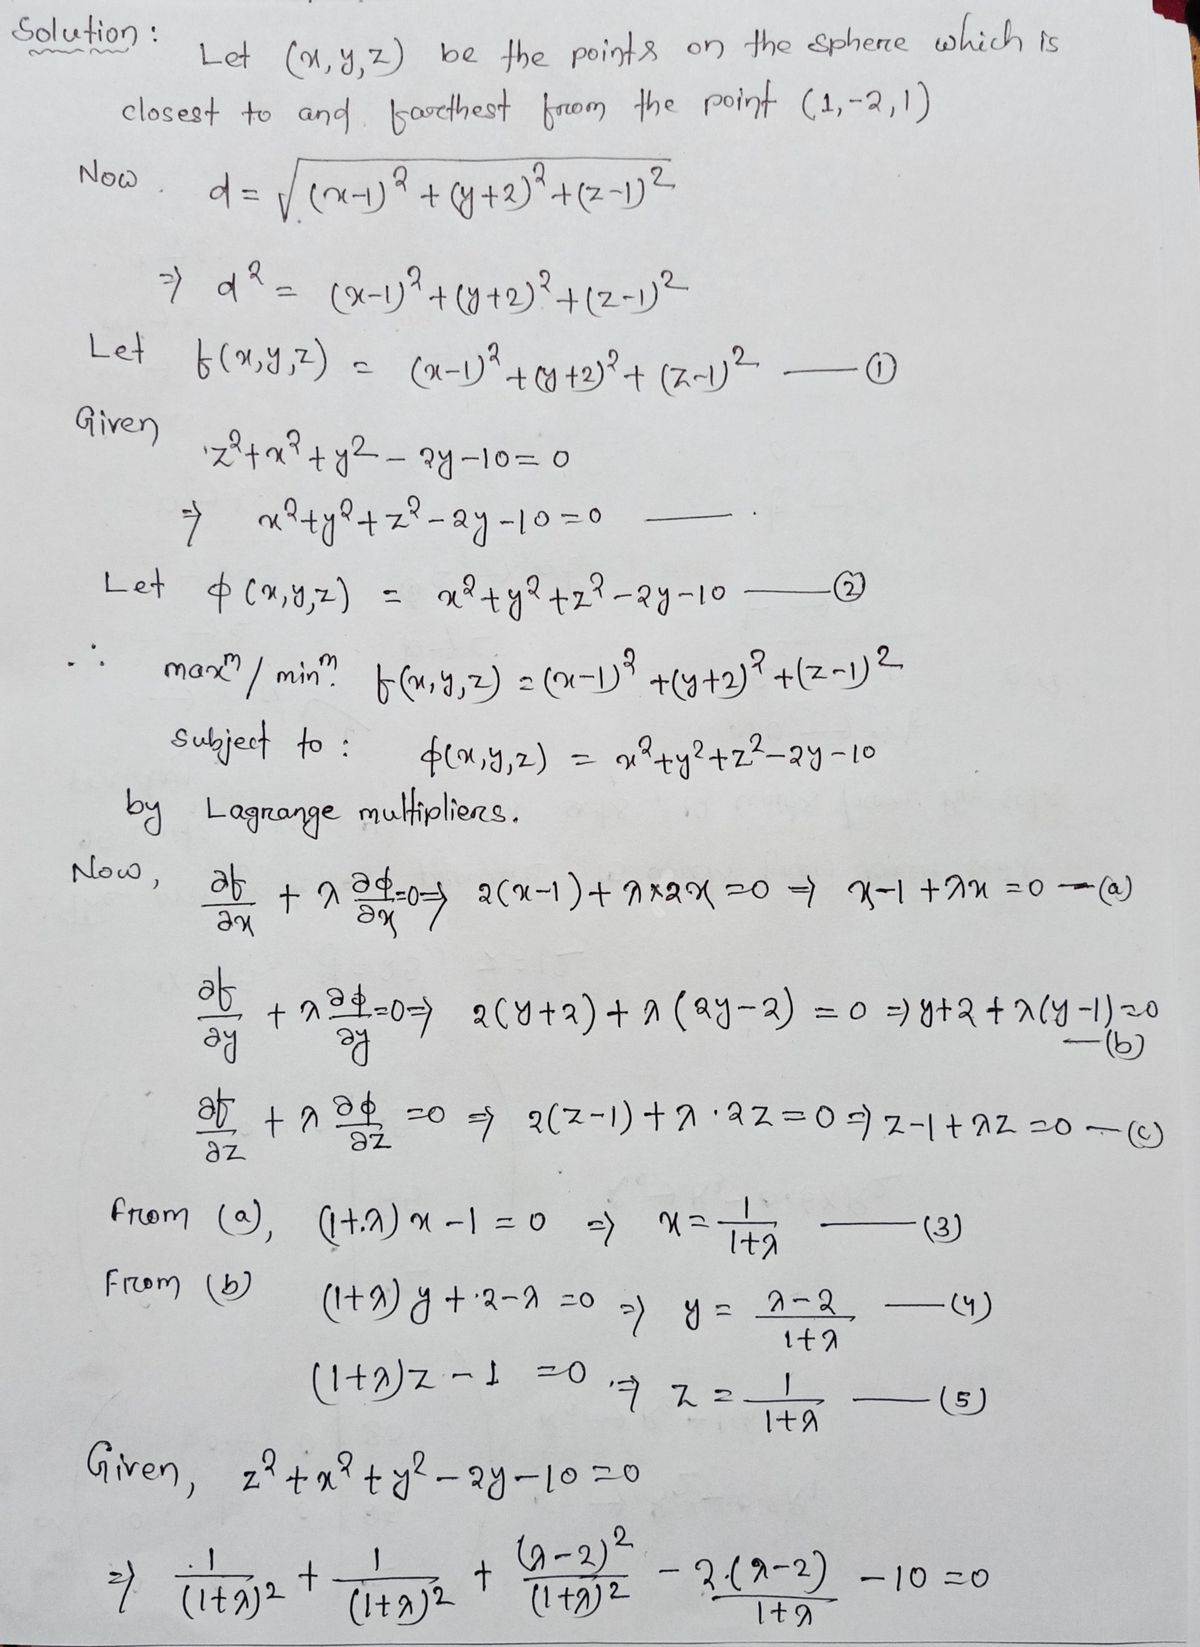 Solution:
Let (x,y,z) be the points on the sphere which is
closest to and farthest from the point (1,-2,1)
Now d = √((x-1)² + (y+2)² + (z-1)²)
⇒ d² = (x-1)² + (y+2)² + (z-1)²
Let f(x,y,z) = (x-1)² + (y+2)² + (z-1)² —— ①
Given
z² + x² + y² - 2y - 10 = 0
⇒ x² + y² + z² - 2y - 10 = 0 ——
Let ϕ(x,y,z) = x² + y² + z² - 2y - 10 —— ②
∴ maxᵐ / minᵐ. f(x,y,z) = (x-1)² + (y+2)² + (z-1)²
Subject to : ϕ(x,y,z) = x² + y² + z² - 2y - 10
by Lagrange multipliers.
Now, ∂f/∂x + λ ∂ϕ/∂x = 0 ⇒ 2(x-1) + λ×2x = 0 ⇒ x-1+λx = 0 —(a)
∂f/∂y + λ ∂ϕ/∂y = 0 ⇒ 2(y+2) + λ(2y-2) = 0 ⇒ y+2+λ(y-1) = 0
—(b)
∂f/∂z + λ ∂ϕ/∂z = 0 ⇒ 2(z-1) + λ·2z = 0 ⇒ z-1+λz = 0 —(c)
From (a), (1+λ)x - 1 = 0 ⇒ x = 1/(1+λ) —— (3)
From (b) (1+λ)y + 2-λ = 0 ⇒ y = (λ-2)/(1+λ) —— (4)
(1+λ)z - 1 = 0 ⇒ z = 1/(1+λ) —— (5)
Given, z² + x² + y² - 2y - 10 = 0
⇒ 1/(1+λ)² + 1/(1+λ)² + (λ-2)²/(1+λ)² - 2·(λ-2)/(1+λ) - 10 = 0